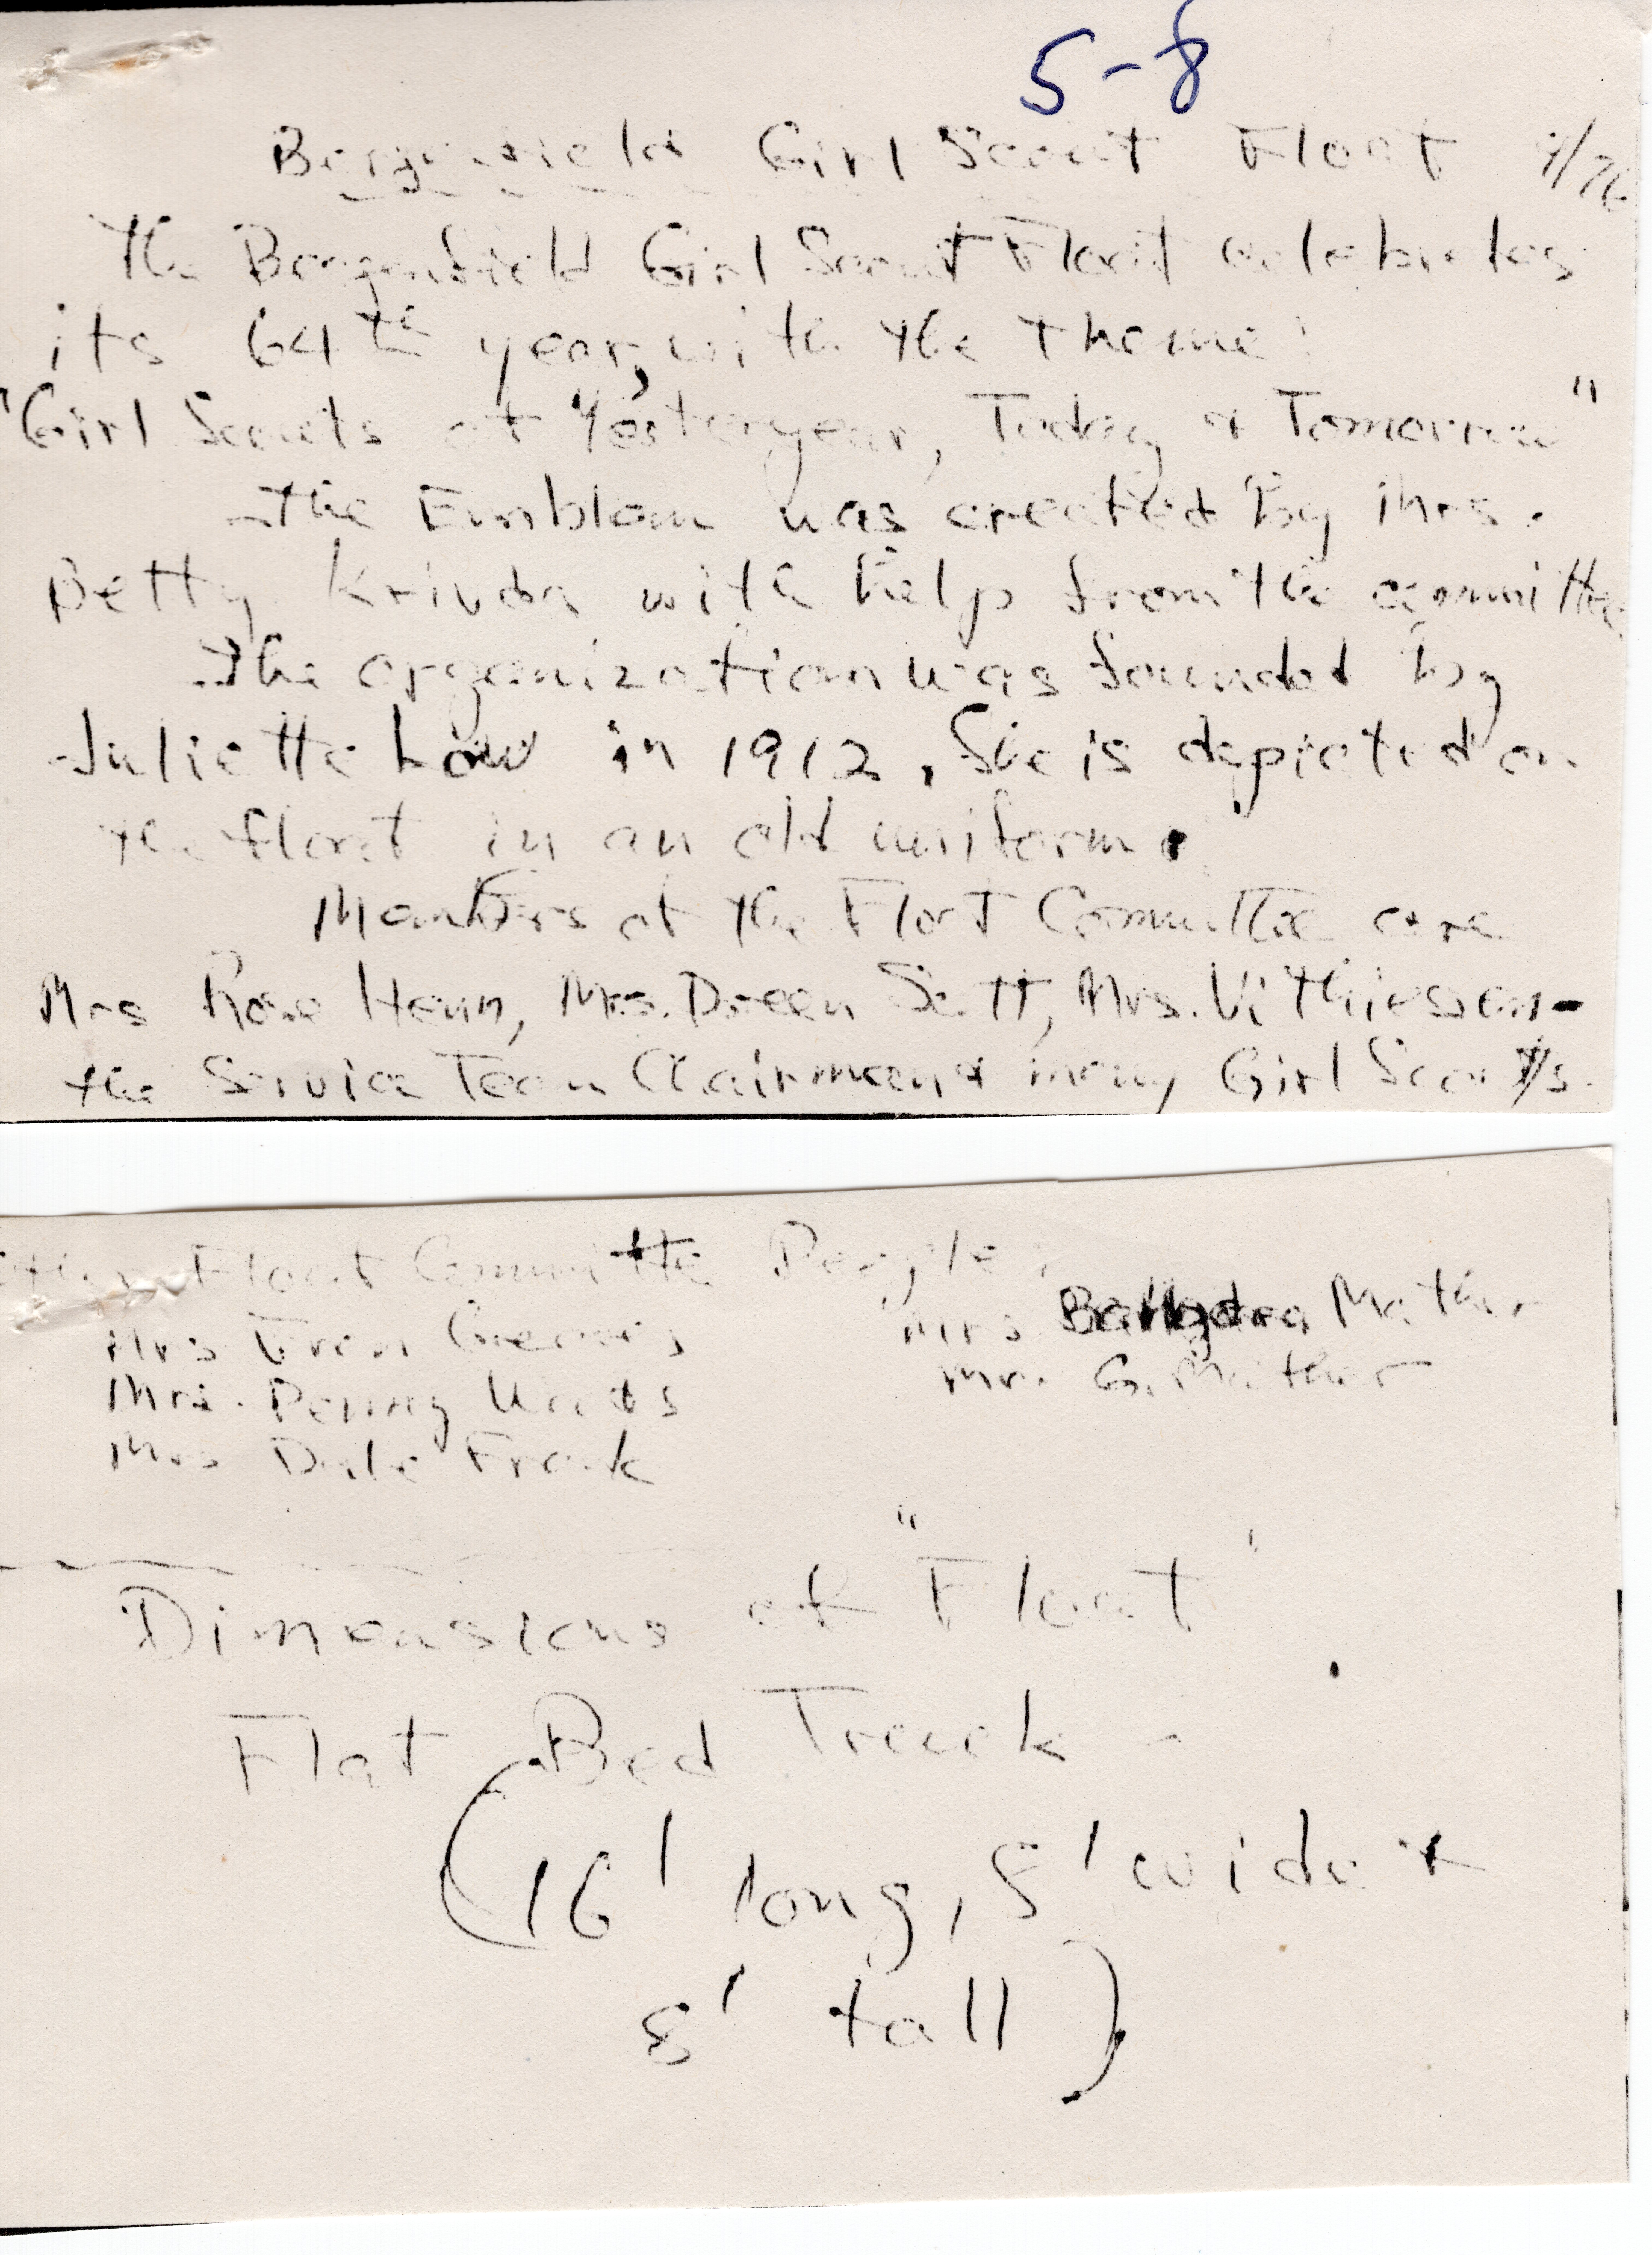 5-8
Bergenfield Girl Scout Float /76
The Bergenfield Girl Scout Float celebrates
its 64th year, with the theme:
"Girl Scouts of Yesteryear, Today & Tomorrow"
The Emblem was created by Mrs.
Betty Krivda with help from the committee
The organization was founded by
Juliette Low in 1912. She is depicted on
the float in an old uniform.
Members of the Float Committee are
Mrs Rose Henn, Mrs. Doreen Scott, Mrs. Vi Thiessen-
the Service Team Chairman & many Girl Scouts.
Float Committee People:
Mrs Fran Mrs Mather
Mrs. Penny Woods Mr. G. Mather
Mrs Dale Frank
Dimensions of "Float"
Flat Bed Truck -
(16' long, 8' wide &
8' tall)